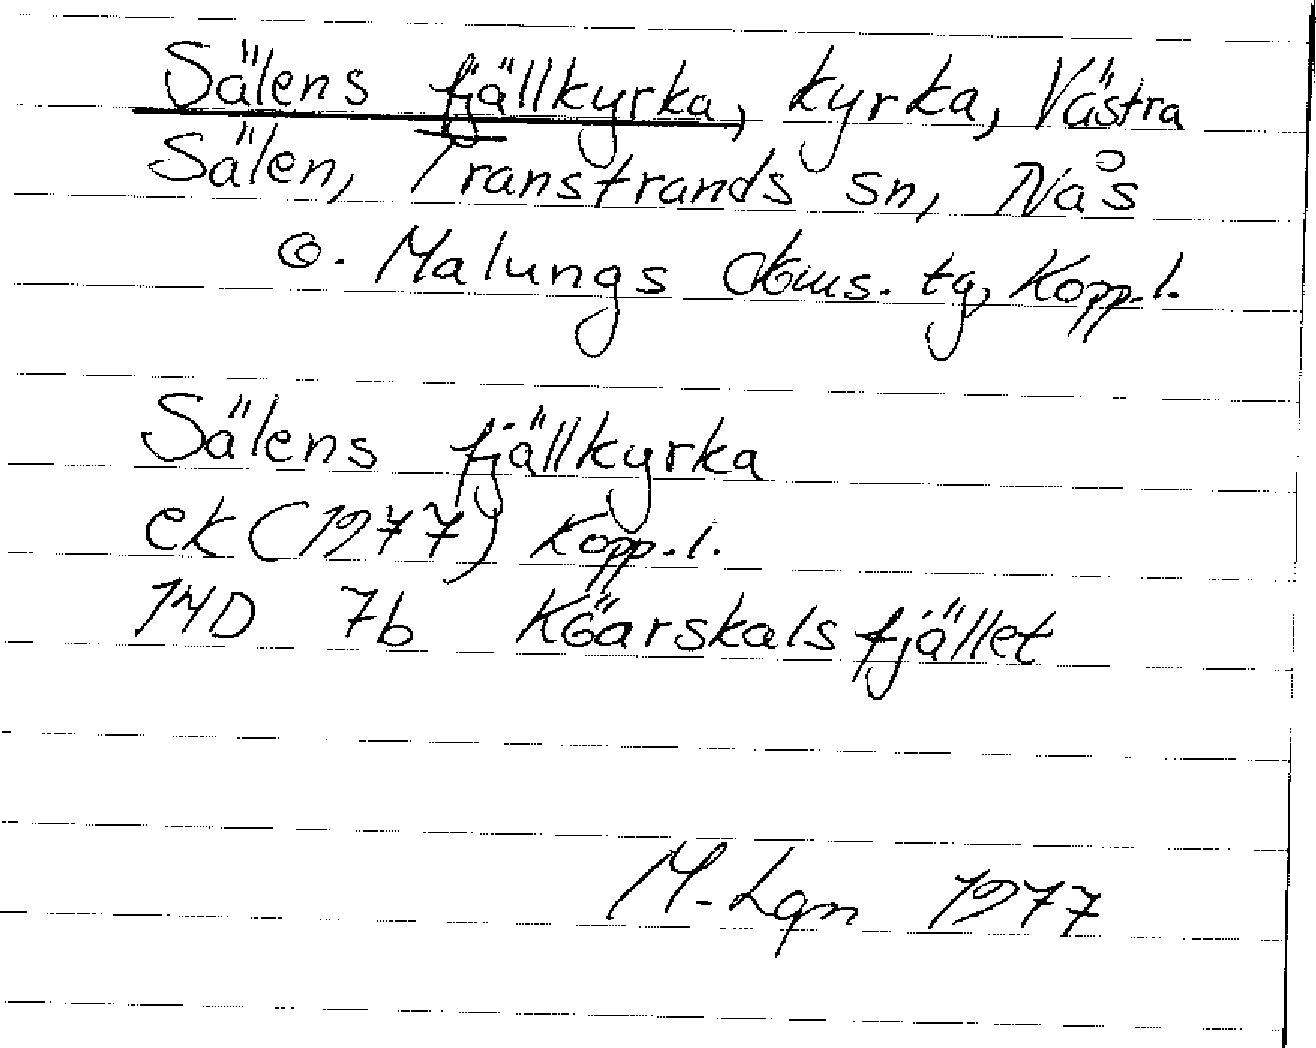 Sälens fjällkyrka, kyrka, Västra
Sälen, Transtrands sn, Nås
o. Malungs doms. tg, Kopp. l.
Sälens fjällkyrka
ek (1977) Kopp. l.
14D 7b Köarskalsfjället
M. Lgn 1977